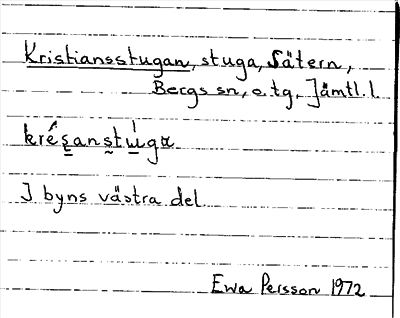 Kristiansstugan, stuga, Sätern,
Bergs sn, o.tg, Jämtl. l.
kré̀s̱ans̱tu̱̍gα
I byns västra del.
Ewa Persson 1972